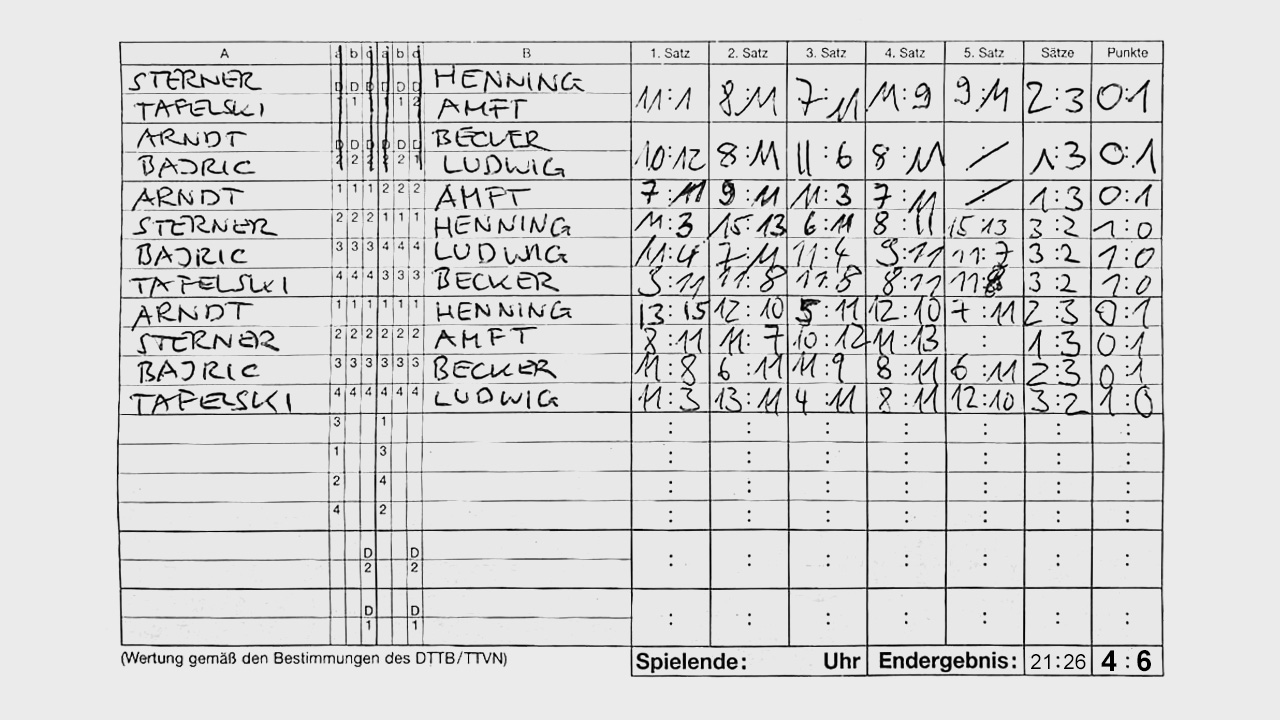 A a b d a b d B 1. Satz 2. Satz 3. Satz 4. Satz 5. Satz Sätze Punkte
STERNER D D D D D D HENNING
TAFELSKI 1 1 1 2 AMFT 11:1 8:11 7:11 11:9 9:11 2:3 0:1
ARNDT D D D D D D BECKER
BAJRIC 2 2 2 2 2 1 LUDWIG 10:12 8:11 11:6 8:11 : 1:3 0:1
ARNDT 1 1 1 2 2 2 AMFT 7:11 9:11 11:3 7:11 : 1:3 0:1
STERNER 2 2 2 1 1 1 HENNING 11:3 15:13 6:11 8:11 15:13 3:2 1:0
BAJRIC 3 3 3 4 4 4 LUDWIG 11:4 7:11 11:4 9:11 11:7 3:2 1:0
TAFELSKI 4 4 4 3 3 3 BECKER 5:11 11:8 11:8 8:11 11:8 3:2 1:0
ARNDT 1 1 1 1 1 1 HENNING 13:15 12:10 5:11 12:10 7:11 2:3 0:1
STERNER 2 2 2 2 2 2 AMFT 8:11 11:7 10:12 11:13 : 1:3 0:1
BAJRIC 3 3 3 3 3 3 BECKER 11:8 6:11 11:9 8:11 6:11 2:3 0:1
TAFELSKI 4 4 4 4 4 4 LUDWIG 11:3 13:11 4:11 8:11 12:10 3:2 1:0
3 1 : : : : : : :
1 3 : : : : : : :
2 4 : : : : : : :
4 2 : : : : : : :
D D
2 2 : : : : : : :
D D
1 1 : : : : : : :
(Wertung gemäß den Bestimmungen des DTTB/TTVN) Spielende: Uhr Endergebnis: 21:26 4:6